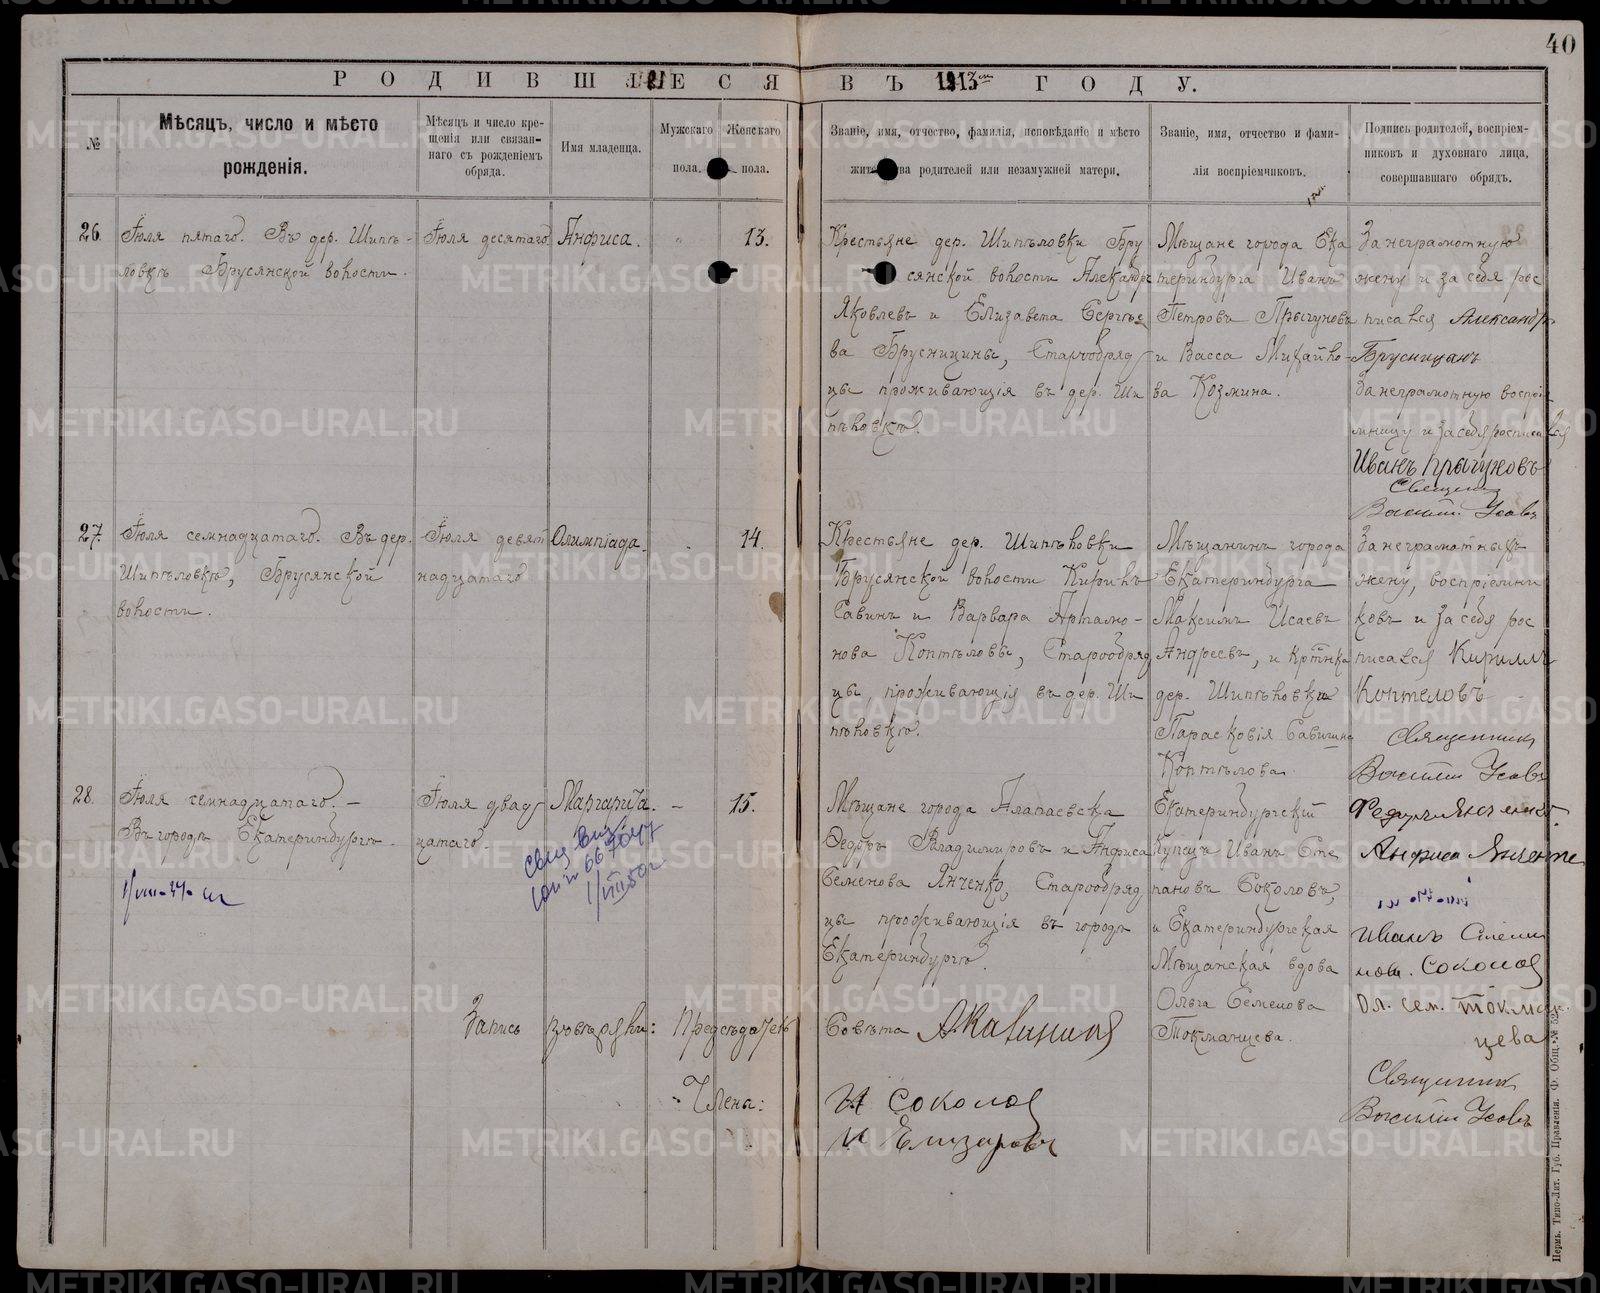 40
РОДИВШІЕСЯ ВЪ 1913 ГОДУ.
№
Мѣсяцъ, число и мѣсто
рожденія.
Мѣсяцъ и число кре-
щенія или связан-
наго съ рожденіемъ
обряда.
Имя младенца.
Мужскаго
пола.
Женскаго
пола.
Званіе, имя, отчество, фамилія, исповѣданіе и мѣсто
жит ва родителей или незамужней матери.
Званіе, имя, отчество и фами-
лія воспріемчиковъ.
Подпись родителей, воспріем-
никовъ и духовнаго лица,
совершавшаго обрядъ.
26.
Іюля пятаго. Въ дер. Шипѣ-
ловкѣ Брусянской волости.
Іюля десятаго
Анфиса.
13.
Крестьяне дер. Шипѣловки Бру
сянской волости Александръ
Яковлевъ и Елизавета Сергѣе
ва Брусницины, Старообряд
цы проживающія въ дер. Ши
пѣловкѣ.
Мѣщане города Ека
теринбурга Иванъ
Петровъ Прыгуновъ
и Васса Михайло-
ва Козмина.
За неграмотную
жену и за себя рос
писался Александръ
Брусницинъ
За неграмотную воспріе
мницу и за себя росписался
Иванъ Прыгуновъ
Священник
Василій Усовъ
27.
Іюля семнадцатаго. Въ дер.
Шипѣловкѣ, Брусянской
волости.
Іюля девят
надцатаго
Олимпіада.
14.
Крестьяне дер. Шипѣловки
Брусянской волости Кирилъ
Савинъ и Варвара Артамо-
нова Коптѣловы, Старообряд
цы, проживающія въ дер. Ши
пѣловкѣ.
Мѣщанинъ города
Екатеринбурга
Максимъ Исаевъ
Андреевъ, и Крт҃нка
дер. Шипѣловки
Парасковія Савишна
Коптѣлова.
За неграмотныхъ
жену, воспріемни
ковъ и за себя рос
писался Кириллъ
Коптеловъ
Священник
Василій Усовъ
28.
Іюля семнадцатаго. —
Въ городѣ Екатеринбургѣ.
Іюля двад
цатаго.
Маргарита.
–
15.
Мѣщане города Алапаевска
Ѳедоръ Владимировъ и Анфиса
Семенова Янченко, Старообряд
цы проживающія въ городѣ
Екатеринбургѣ.
Екатеринбургскій
Купецъ Иванъ Сте
пановъ Соколовъ,
и Екатеринбургская
Мѣщанская вдова
Ольга Семенова
Токманцева.
Федоръ Янченко.
Анфиса Янченко
Иванъ Степа
нов. Соколов
Ол. сем. Токман
цева
Священник
Василій Усовъ
Запись свѣряли: Предсѣдатель Совѣта
Члены:
И Соколов
И Елизаровъ
Пермь. Типо-Лит. Губ. Правленія. Ф. Общ. № 52.
METRIKI.GASO-URAL.RU